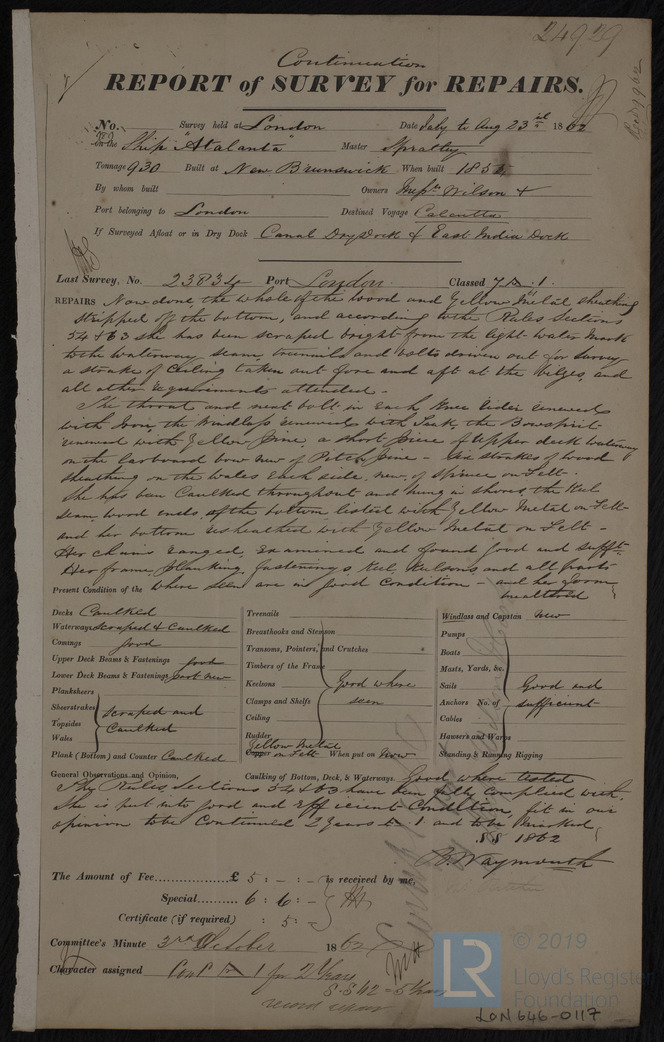 24929
Continuation
REPORT of SURVEY for REPAIRS.
No. Survey held at London Date July to Aug 23rd 1862
on the Ship "Atalanta Master Spratley
Tonnage 930 Built at New Brunswick When built 1855
By whom built Owners Messrs Wilson &
Port belonging to London Destined Voyage Calcutta
If Surveyed Afloat or in Dry Dock Canal Dry Dock & East India Dock
Last Survey, No. 23834 Port London Classed 1
REPAIRS Now done, the whole of the wood and Yellow Metal sheathing
stripped off the bottom, and according to the Rules Sections
54 & 63 she has been scraped bright from the light water mark
to the waterway seam, treenails and bolts driven out for survey
a strake of Ceiling taken out fore and aft at the bilges, and
all other requirements attended.
The throat and next bolt in each Knee Rider renewed
with Iron, the Windlass renewed with Teak, the Bowsprit
renewed with Yellow Pine, a short piece of Upper deck waterway
on the larboard bow new of Pitch Pine - Six strakes of wood
sheathing on the wales each side, new, of Spruce on Felt.
She has been Caulked throughout and hung in shores, the Keel
seam, wood ends, of the bottom listed with Yellow Metal on Felt
and her bottom resheathed with Yellow Metal on Felt -
Her chains ranged, examined and found good and sufft
Her frame, planking, fastenings Keel, Keelsons, and all parts
Present Condition of the where seen are in good condition - and her form
unaltered
Decks Caulked
Waterways scraped & Caulked
Comings good
Upper Deck Beams & Fastenings good
Lower Deck Beams & Fastenings part new
Planksheers
Sheerstrakes
Topsides
Wales
scraped and
Caulked
Plank (Bottom) and Counter Caulked
Treenails
Breasthooks and Stemson
Transoms, Pointers, and Crutches
Timbers of the Frame
Keelsons
Clamps and Shelfs
Ceiling
Rudder
Good where
seen
Yellow Metal
Copper on Felt When put on Now
Windlass and Capstan New
Pumps
Boats
Masts, Yards, &c.
Sails
Anchors No. of
Cables
Hawsers and Warps
Standing & Running Rigging
Good and
sufficient
General Observations and Opinion, Caulking of Bottom, Deck, & Waterways. Good where tested
The Rules, Sections 54 & 63 have been fully complied with.
She is put into good and efficient condition, fit in our
opinion to be Continued 2 Years 1 and to be marked
SS 1862
Waymouth
The Amount of Fee £ 5 : - : - is received by me,
Special 6 : 6 : -
Certificate (if required) : 5 : -
Committee's Minute 3rd October 1862
Character assigned 1 for 2 Years
© 2019
LR Lloyd's Register
Foundation
LON646-0117